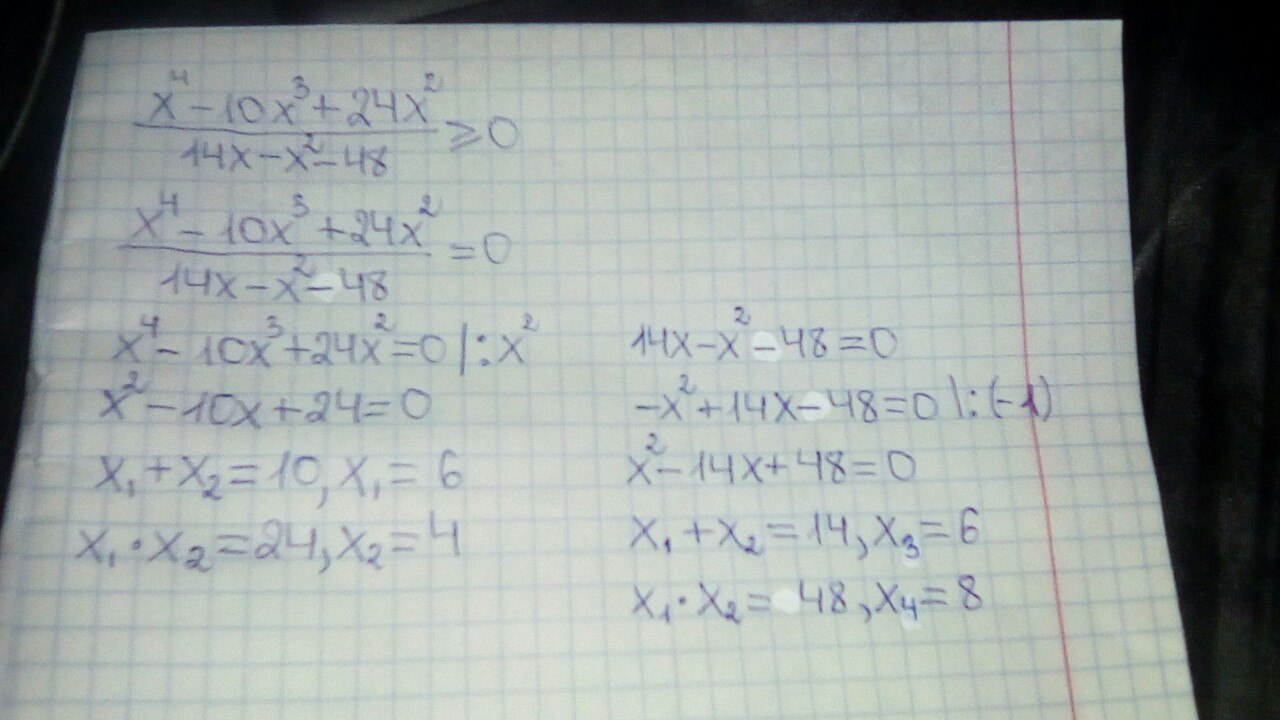 x⁴-10x³+24x²
14x-x²-48 ≥0
x⁴-10x³+24x²
14x-x²-48 =0
x⁴-10x³+24x²=0|:x²
x²-10x+24=0
x₁+x₂=10, x₁=6
x₁·x₂=24, x₂=4
14x-x²-48=0
-x²+14x-48=0|:(-1)
x²-14x+48=0
x₁+x₂=14, x₃=6
x₁·x₂=48, x₄=8